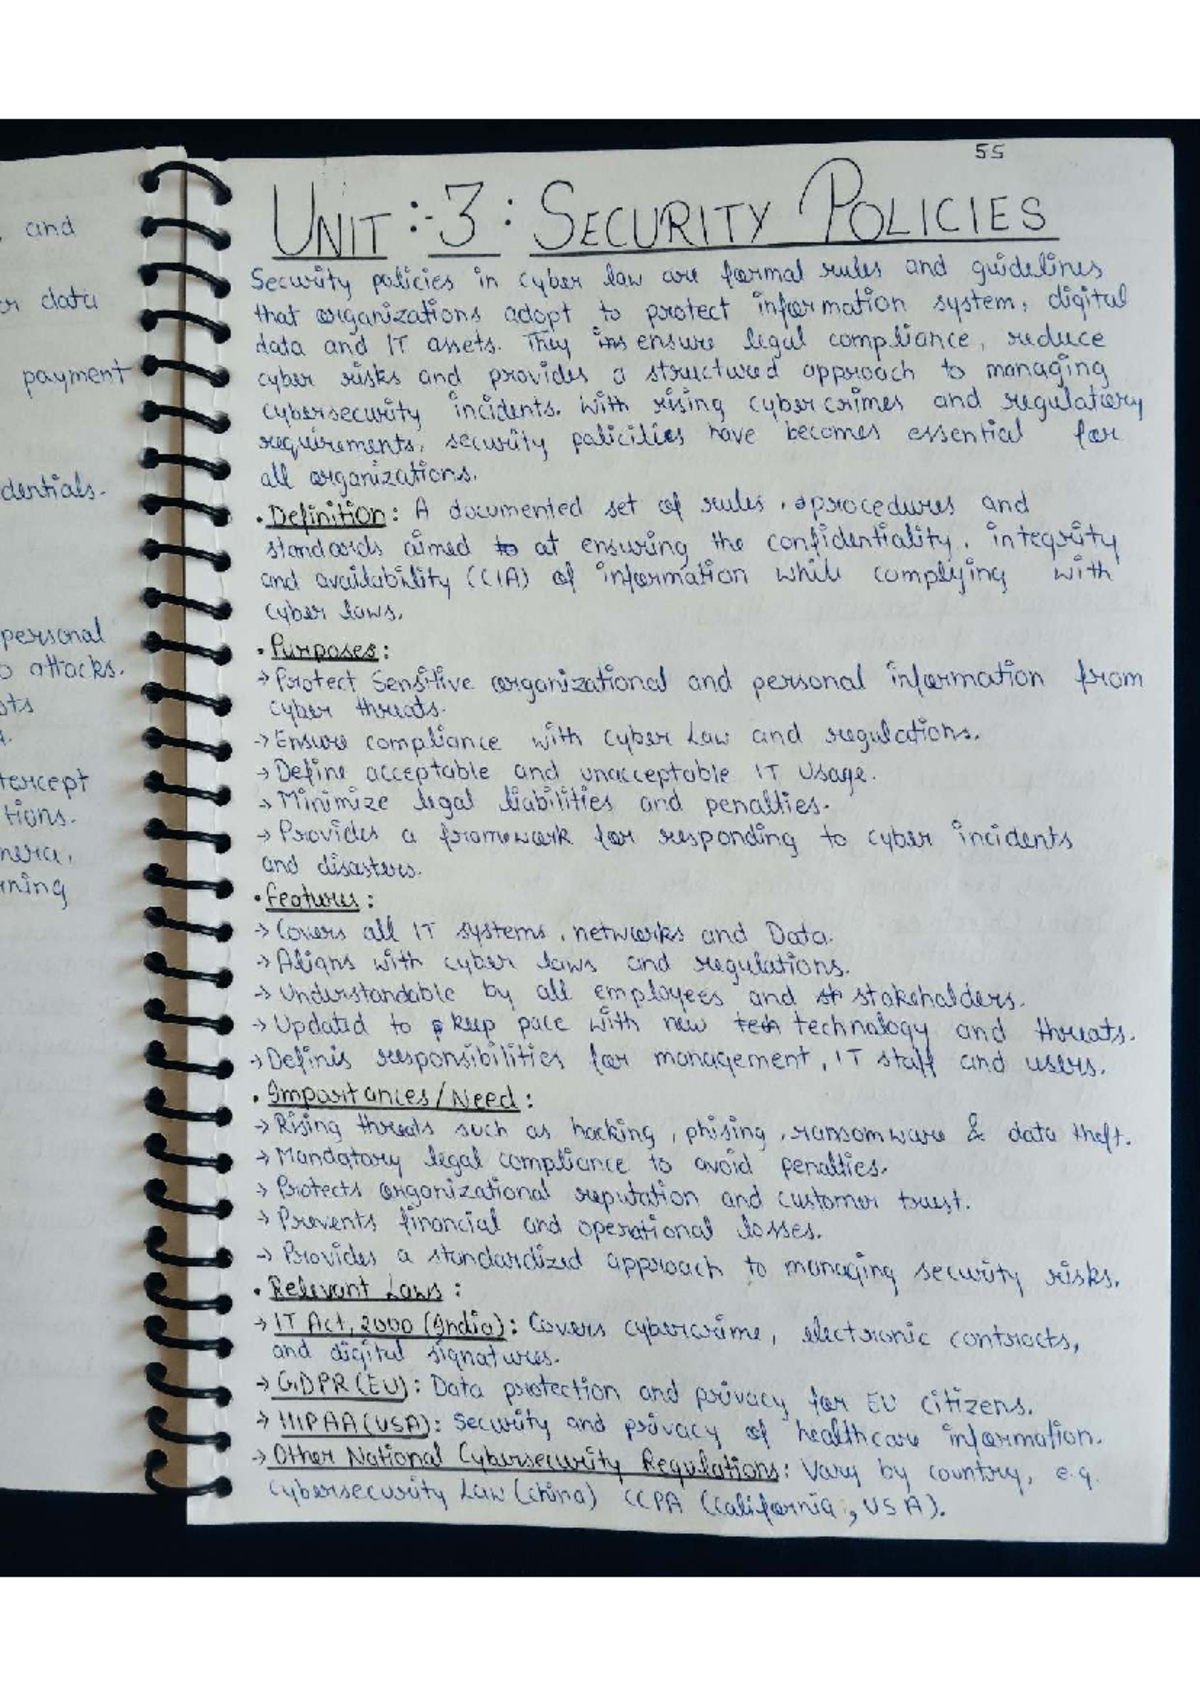 55
UNIT :- 3 : SECURITY POLICIES
Security policies in cyber law are formal rules and guidelines
that organizations adopt to protect information system, digital
data and IT assets. They ins ensure legal compliance, reduce
cyber risks and provides a structured approach to managing
cybersecurity incidents. With rising cybercrimes and regulatory
requirements, security policilies have becomes essential for
all organizations.
• Definition : A documented set of rules, procedures and
standards aimed to at ensuring the confidentiality, integrity
and availability (CIA) of information while complying with
cyber laws.
• Purposes :
→ Protect Sensitive organizational and personal information from
cyber threats.
→ Ensure compliance with cyber Law and regulations.
→ Define acceptable and unacceptable IT Usage.
→ Minimize legal liabilities and penalties.
→ Provides a framework for responding to cyber incidents
and disasters.
• Features :
→ Covers all IT systems, networks and Data.
→ Aligns with cyber laws and regulations.
→ Understandable by all employees and st stakeholders.
→ Updated to p keep pace with new tech technology and threats.
→ Defines responsibilities for management, IT staff and users.
• Importances / Need :
→ Rising threats such as hacking, phising, ransomware & data theft.
→ Mandatory legal compliance to avoid penalties.
→ Protects organizational reputation and customer trust.
→ Prevents financial and operational losses.
→ Provides a standardized approach to managing security risks.
• Relevant Laws :
→ IT Act, 2000 (India) : Covers cybercrime, electronic contracts,
and digital signatures.
→ GDPR (EU) : Data protection and privacy for EU citizens.
→ HIPAA (USA) : Security and privacy of healthcare information.
→ Other National Cybersecurity Regulations : Vary by country, e.g.
Cybersecurity Law (China) CCPA (California, USA).
and
data
payment
dentials.
personal
attacks.
tercept
tions.